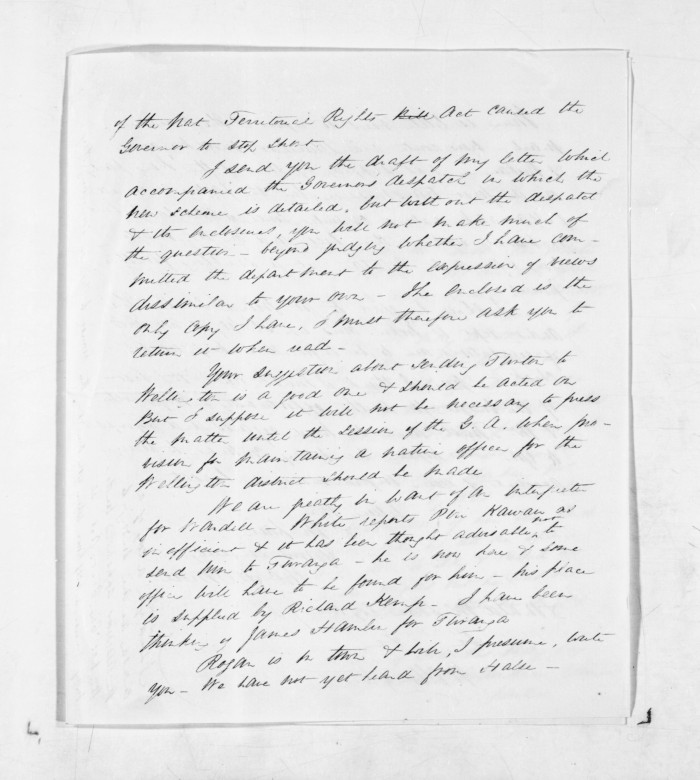 of the Nat. Territorial Rights Bill Act caused the
Governor to stop short.
I send you the draft of my letter which
accompanied the Governors despatch in which the
new scheme is detailed, but without the despatch
& its enclosures, you will not make much of
the question – beyond judging whether I have com-
mitted the department to the expression of views
dissimilar to your own – The enclosed is the
only copy I have, I must therefore ask you to
return it when read –
Your suggestion about sending Turton to
Wellington is a good one & should be acted on
But I suppose it will not be necessary to press
the matter until the session of the G. A. when pro-
vision for maintaining a native officer for the
Wellington district should be made
We are greatly in want of an Interpreter
for Wardell – White reports Kawau as
inefficient & it has been thought advisable not to
send him to Turanga – he is now here & some
office will have to be found for him – his place
is supplied by Richard Kemp – I have been
thinking of James Hamlin for Turanga
Rogan is in town & will, I presume, write
you – We have not yet heard from Halse –